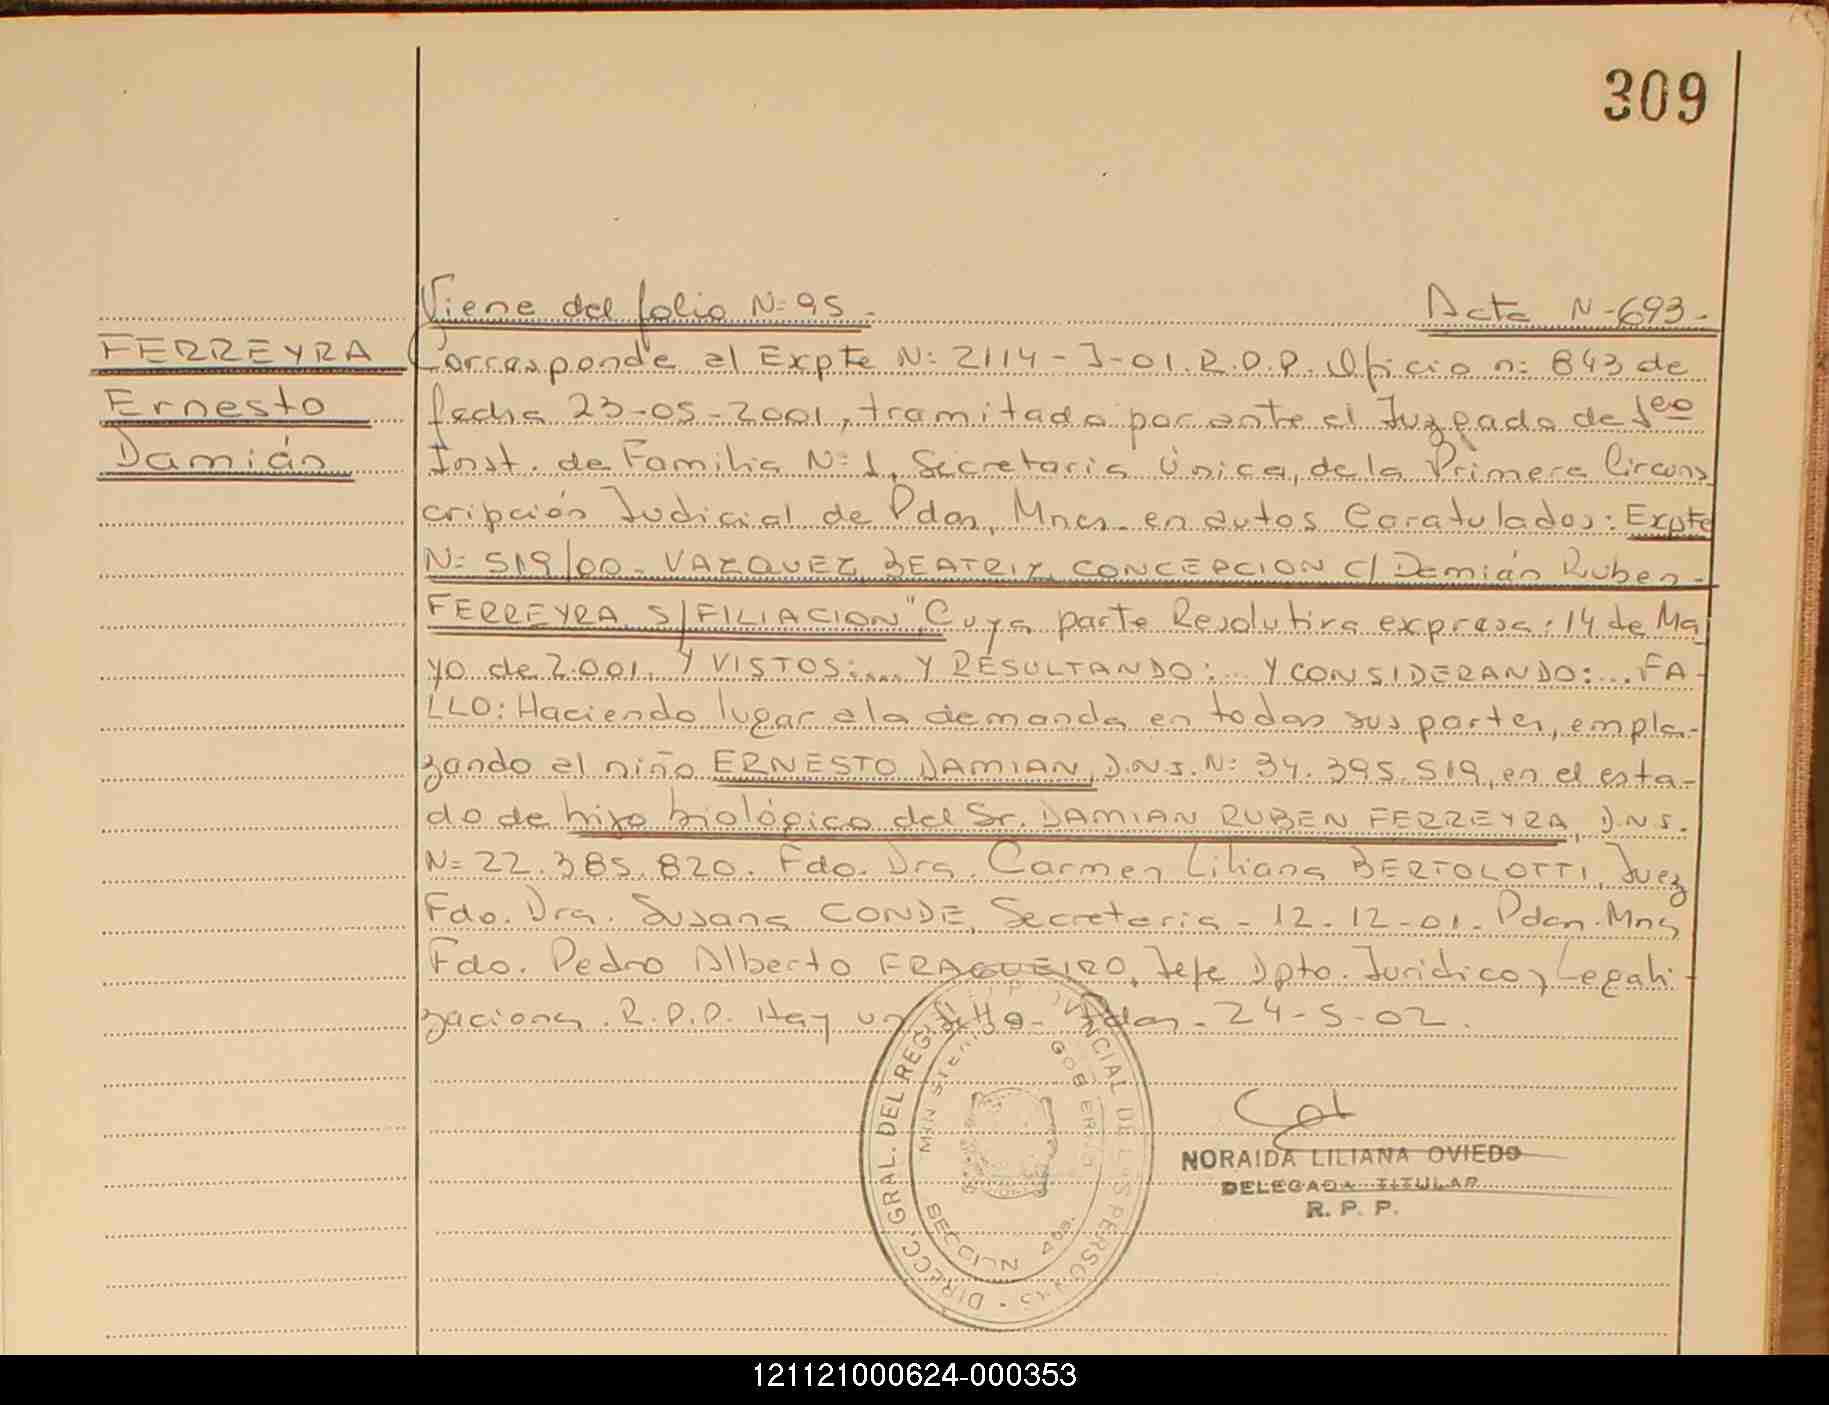 309
Viene del folio N=95.- Acta N-693-
FERREYRA
Ernesto
Damián
Corresponde al Expte N: 2114-J-01. R.P.P. Oficio n: 843 de
fecha 23-05-2001, tramitado por ante el Juzgado de 1era
Inst. de Familia N=1, Secretaria Única, de la Primera Circuns
cripción Judicial de Pdas, Mnes- en autos Caratulados: Expte
N= 519/00- VAZQUEZ, BEATRIZ, CONCEPCION C/ Demián Ruben-
FERREYRA S/FILIACION", Cuya parte Resolutiva expresa: 14 de Ma
yo de 2.001, Y VISTOS:.... Y RESULTANDO:... Y CONSIDERANDO:... FA-
LLO: Haciendo lugar a la demanda en todas sus partes, empla-
zando al niño ERNESTO DAMIAN, D.N.I. N: 34.395.519, en el esta-
do de hijo biológico del Sr. DAMIAN RUBEN FERREYRA, D.N.I.
N=22.385.820. Fdo. Dra. Carmen Liliana BERTOLOTTI, Juez
Fdo. Dra. Susana CONDE, Secretaria- 12-12-01- Pdas. Mns
Fdo. Pedro Alberto FRAGUEIRO, Jefe Dpto. Jurídico y Legali-
zaciones. R.P.P. Hay un sello- Pdas- 24-5-02.
DIRECC. GRAL. DEL REG. PROVINCIAL DE LAS PERSONAS
MINISTERIO GOBIERNO
SECCION Pdas.
NORAIDA LILIANA OVIEDO
DELEGADA TITULAR
R. P. P.
121121000624-000353